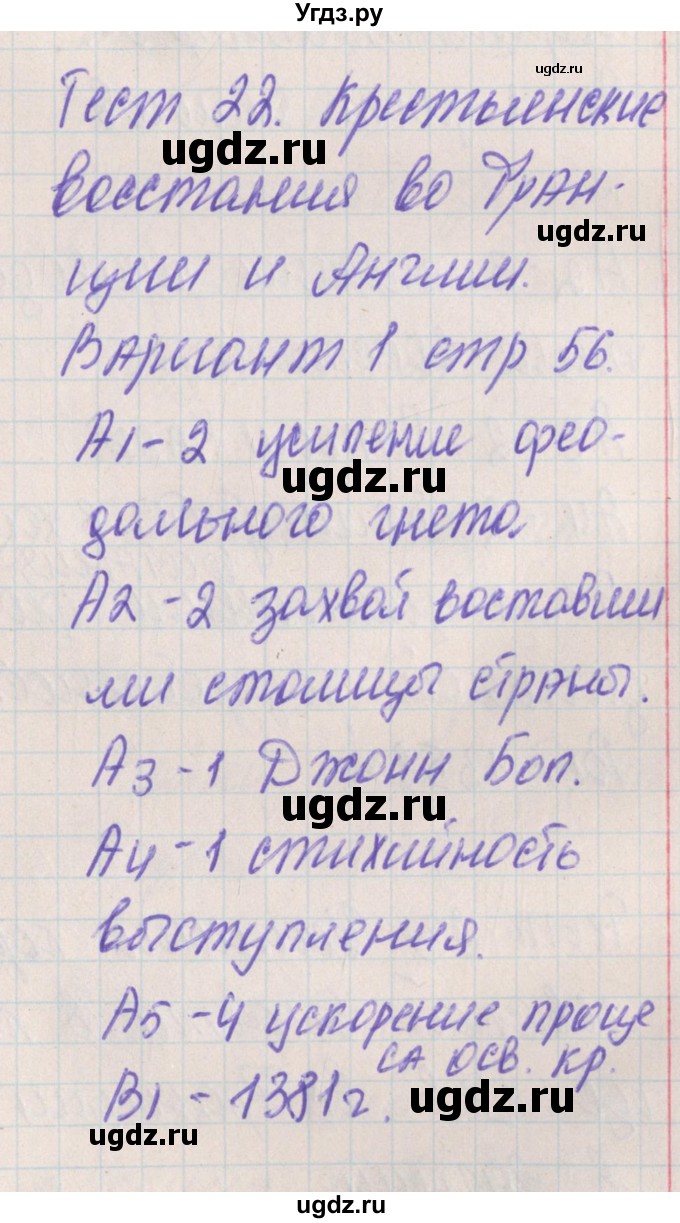 Угдз.ру
ugdz.ru
Тест 22. Крестьянские
ugdz.ru
восстания во Фран-
ugdz.ru
ции и Англии.
Вариант 1 стр 56.
А1-2 усиление фео-
ugdz.ru
дального гнета
А2-2 захват воставши
ми столицы страны.
А3-1 Джонн Бол.
ugdz.ru
А4-1 стихийность
выступления.
А5-4 ускорение проце
са осв. кр.
В1-1381г.
ugdz.ru
ugdz.ru
ugdz.ru